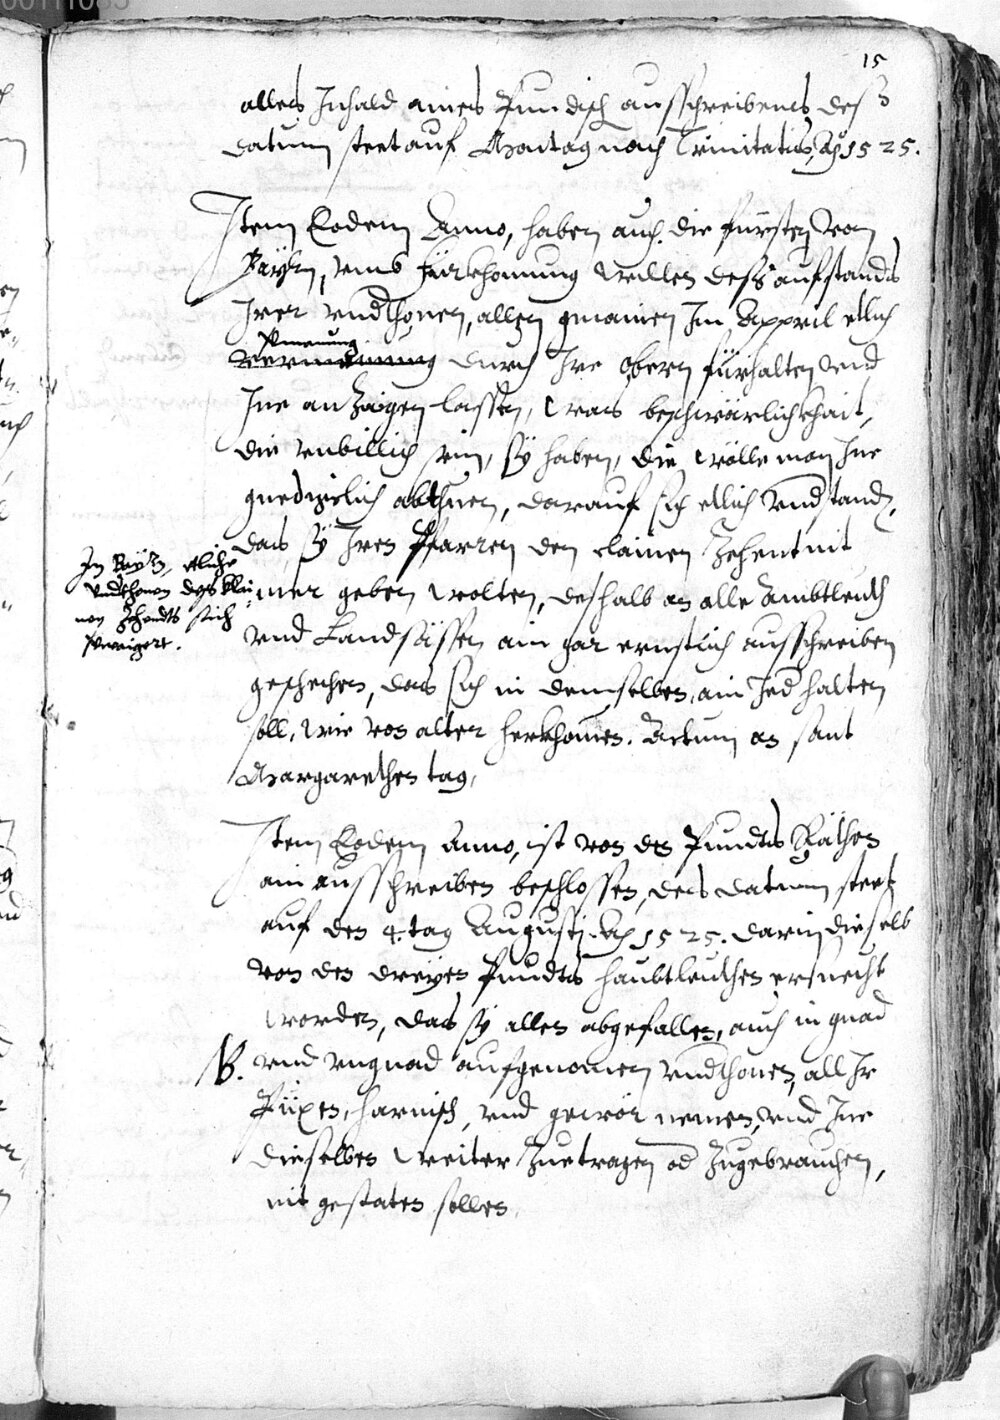 00111085
15
alles Inhald aines Pundisch ausschreibens, deß
datum steet auf Montag nach Trinitatis, Ao 1525.
Item Eodem Anno, haben auch die Fürsten von
Bayrn, vmb Fürkhomung willen deß aufstandts
Irer vndthonen, allen gmainen Im Appril etlich
Vermanung
durch Ire Obern fürhalten vnd
Ine anzaigen lassen, was beschwärlichkhait,
die vnbillich sein, sy haben, die wölle man Ine
gnedigclich abthuen, darauf sich etlich vndstandn,
das sy Iren Pfarren den clainen Zehent nit
mer geben wolten, deshalb an alle Ambtleuth
vnd Landsässen ain gar ernstlich ausschreiben
geschechen, das sich in demselben, ain Jed halten
soll, wie von alter herkhomen. Actum an sant
Margarethen tag,
In Bayrn, etliche
vndthonen deß klai-
nen Zehendts sich
verwigert.
Item Eodem Anno, ist von den Pundts Räthen
ain ausschreiben beschlossen, des datum steet
auf den 4. tag Augustj Ao 1525. darin dieselb
von den dreyen Pundts haubtleuthen ersuecht
worden, das sy allen abgefallen, auch in gnad
NB. vnd vngnad aufgenomen vndthonen, all Ir
Püxen, harnisch, vnd gewör nemen, vnd Ine
dieselben weiter Zuetragen od Zugebrauchen,
nit gestaten sollen.